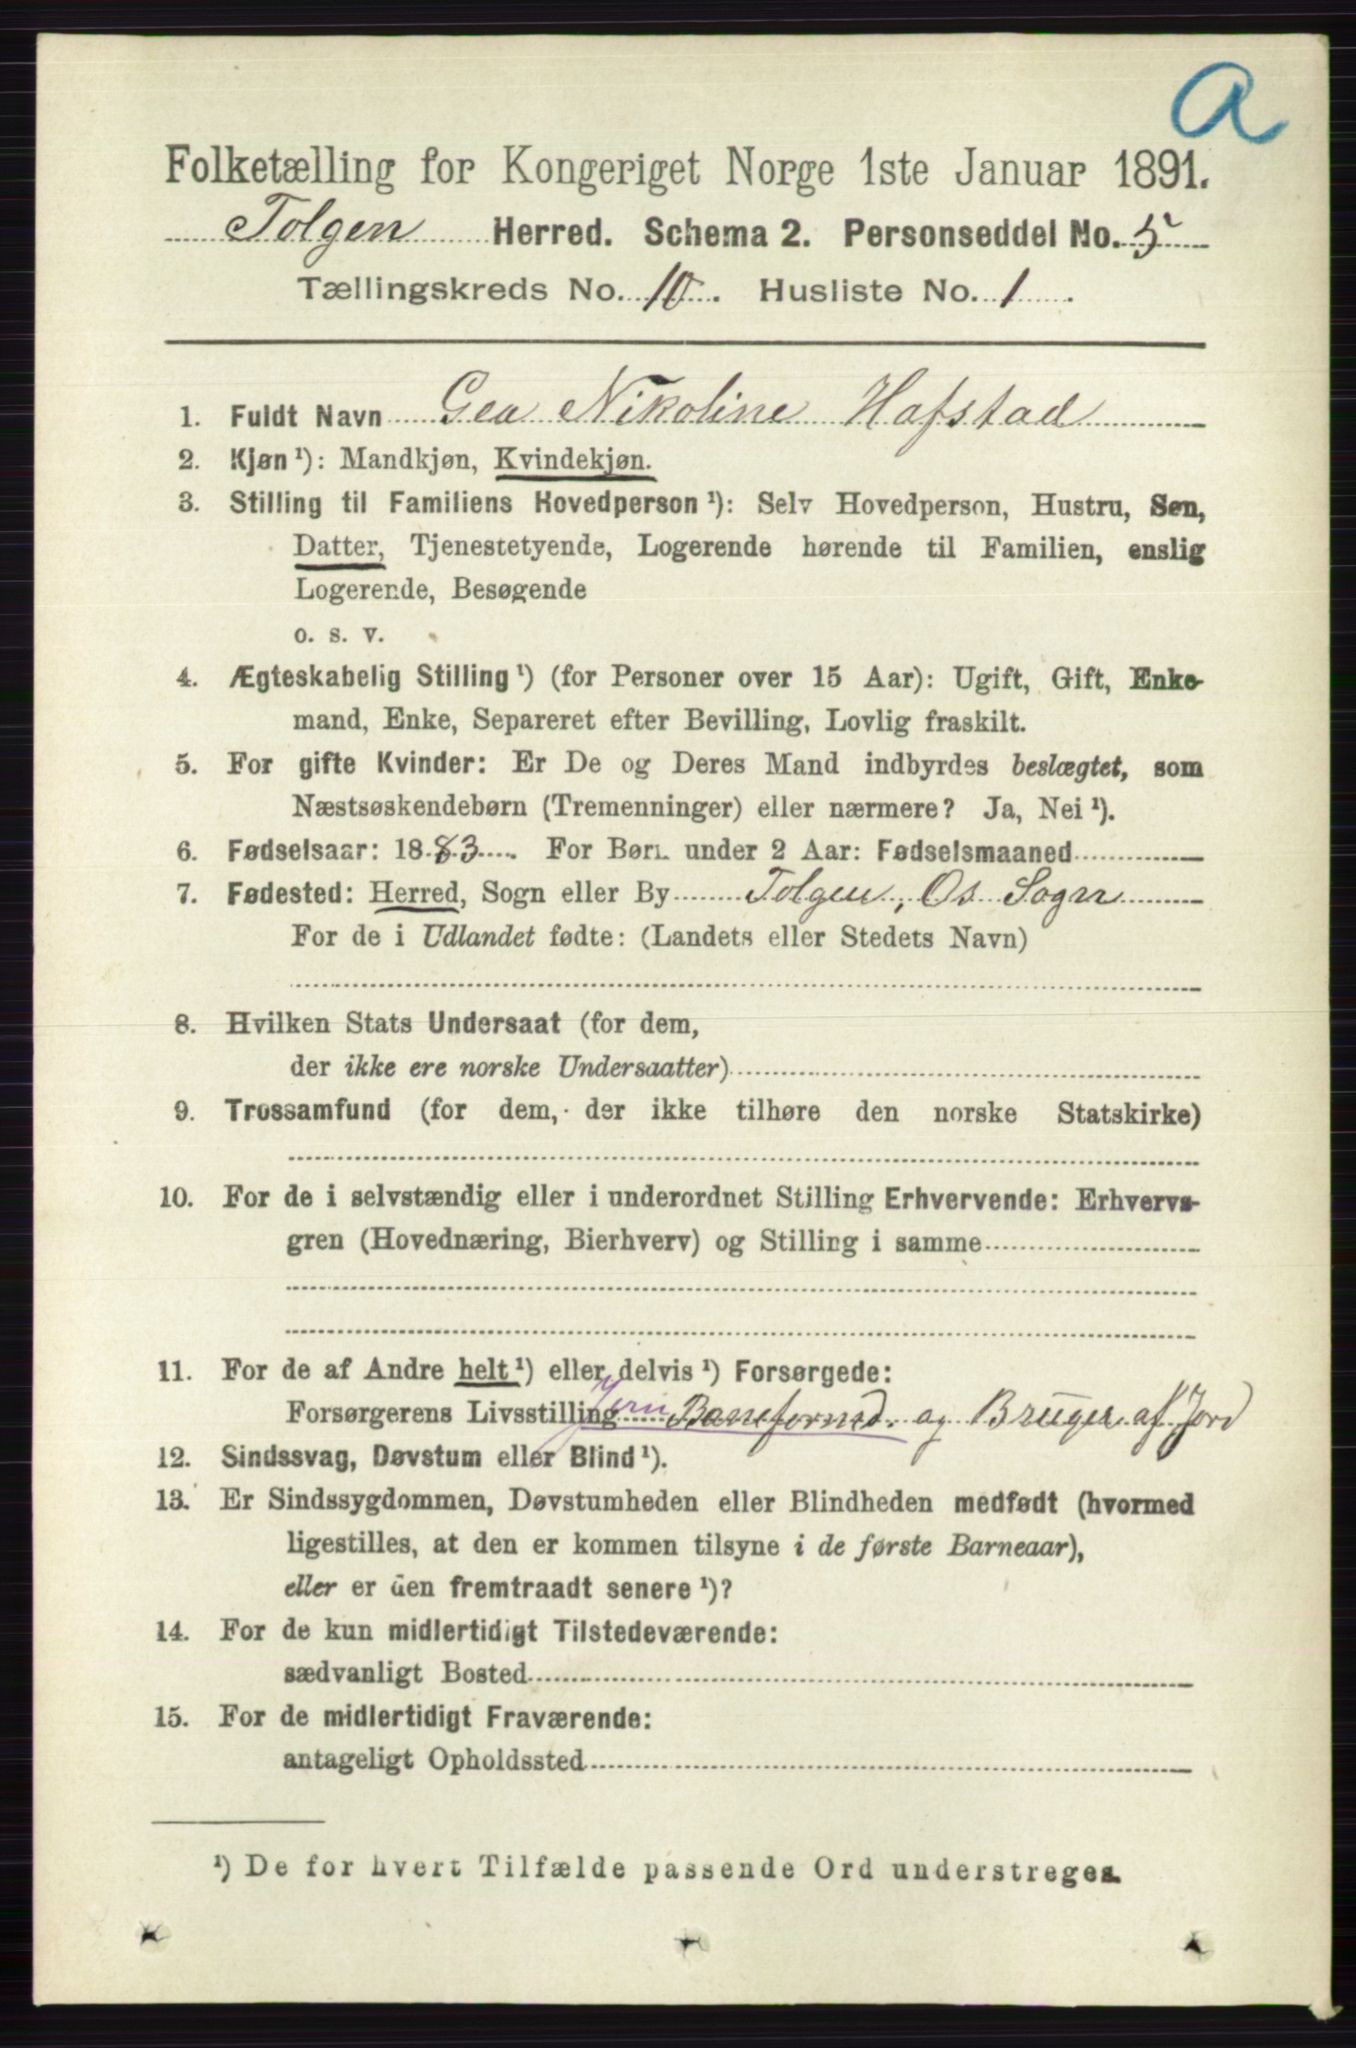 a
Folketælling for Kongeriget Norge 1ste Januar 1891.
Tolgen Herred. Schema 2. Personseddel No. 5
Tællingskreds No. 10. Husliste No. 1.
1. Fuldt Navn Gea Nikoline Hafstad
2. Kjøn ¹): Mandkjøn, Kvindekjøn.
3. Stilling til Familiens Hovedperson ¹): Selv Hovedperson, Hustru, Søn,
Datter, Tjenestetyende, Logerende hørende til Familien, enslig
Logerende, Besøgende
o. s. v.
4. Ægteskabelig Stilling ¹) (for Personer over 15 Aar): Ugift, Gift, Enke-
mand, Enke, Separeret efter Bevilling, Lovlig fraskilt.
5. For gifte Kvinder: Er De og Deres Mand indbyrdes beslægtet, som
Næstsøskendebørn (Tremenninger) eller nærmere? Ja, Nei ¹).
6. Fødselsaar: 1883. For Børn under 2 Aar: Fødselsmaaned
7. Fødested: Herred, Sogn eller By Tolgen, Os Sogn
For de i Udlandet fødte: (Landets eller Stedets Navn)
8. Hvilken Stats Undersaat (for dem,
der ikke ere norske Undersaatter)
9. Trossamfund (for dem, der ikke tilhøre den norske Statskirke)
10. For de i selvstændig eller i underordnet Stilling Erhvervende: Erhvervs-
gren (Hovednæring, Bierhverv) og Stilling i samme
11. For de af Andre helt ¹) eller delvis ¹) Forsørgede:
Forsørgerens Livsstilling Jern Baneformd. og Bruger af Jord
12. Sindssvag, Døvstum eller Blind ¹).
13. Er Sindssygdommen, Døvstumheden eller Blindheden medfødt (hvormed
ligestilles, at den er kommen tilsyne i de første Barneaar),
eller er den fremtraadt senere ¹)?
14. For de kun midlertidigt Tilstedeværende:
sædvanligt Bosted
15. For de midlertidigt Fraværende:
antageligt Opholdssted
¹) De for hvert Tilfælde passende Ord understreges.